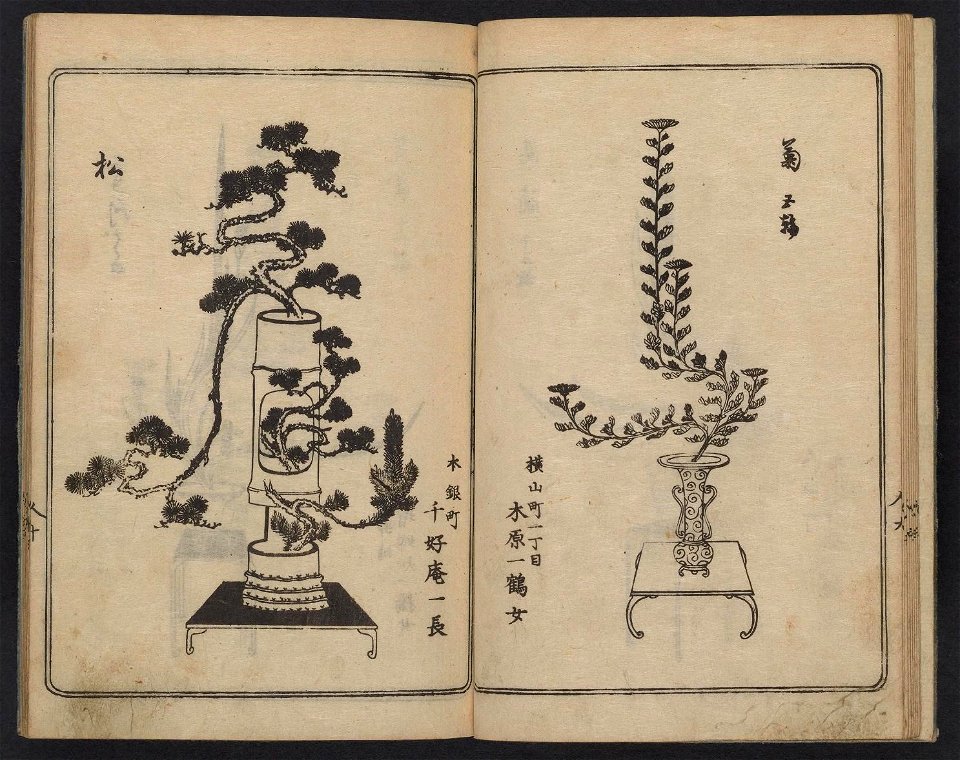 菊 五輪
横山町一丁目
水原一鶴女
松
本銀町
千好庵一長